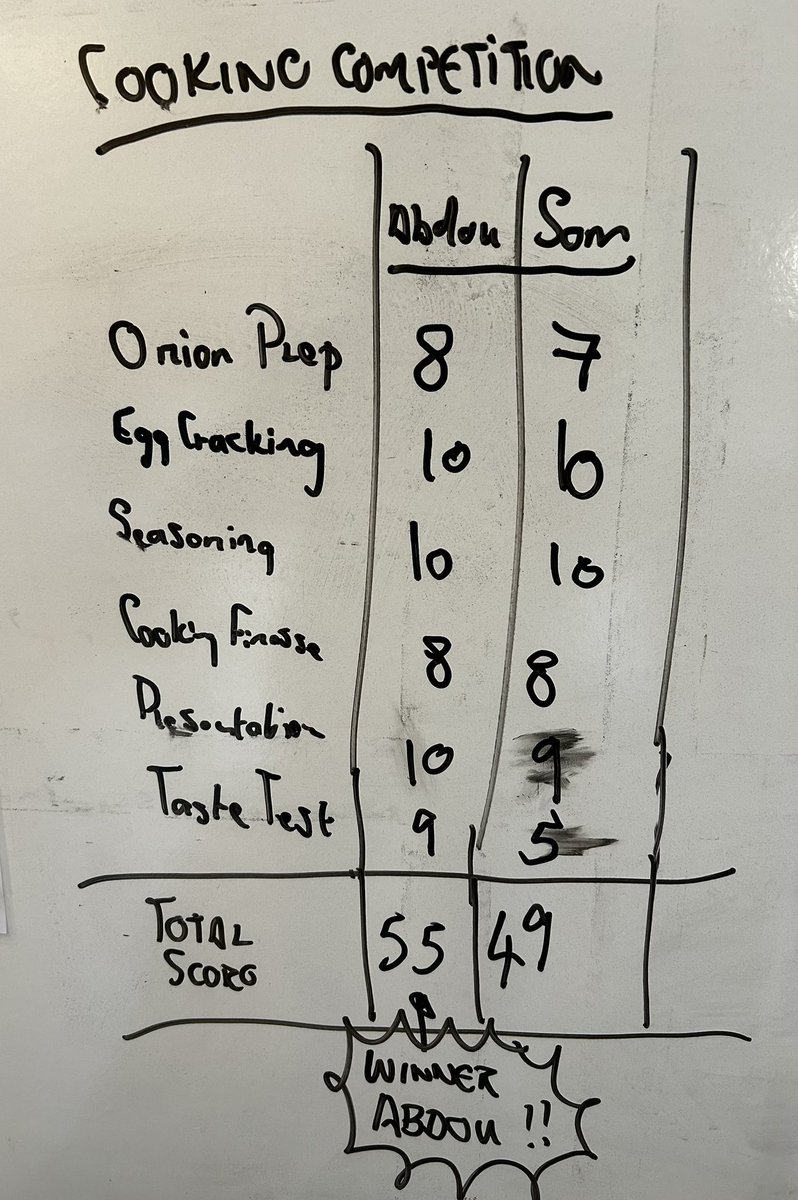 COOKING COMPETITION
Abdou Sam
Onion Prep 8 7
Egg Cracking 10 10
Seasoning 10 10
Cooking Finesse 8 8
Presentation 10 9
Taste Test 9 5
TOTAL 55 49
SCORE
WINNER
ABDOU !!